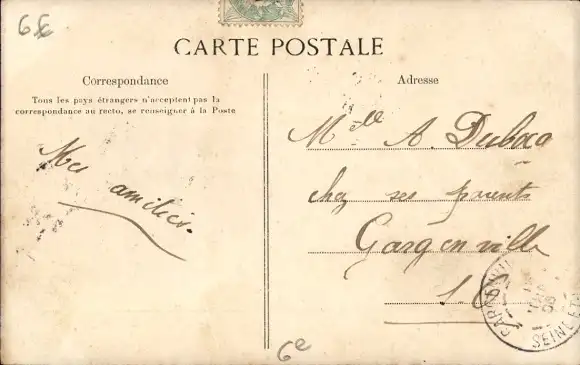 6E
CARTE POSTALE
Correspondance
Tous les pays étrangers n'acceptent pas la
correspondance au recto, se renseigner à la Poste
Mes
amitiés.
Adresse
Mlle A. Duboc
chez ses parents
Gargenville
S.
SEINE ET
6e